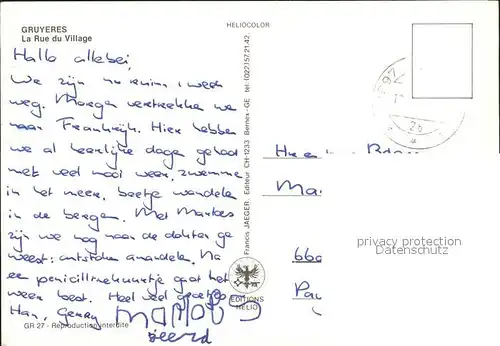 GRUYERES
La Rue du Village
HELIOCOLOR
Hallo allebei,
We zijn nu ruim 1 week
weg. Morgen vertrekken we
naar Frankrijk. Hier hebben
we al heerlijke dagen gehad
met veel mooi weer, zwemmen
in het meer, beetje wandelen
in de bergen. Met
zijn we nog naar de dokter ge
weest: ontstoken amandelen. Na
een penicillinekuurtje gaat het
weer best. Heel veel groetjes
Han, Gerry
GR 27 - Reproduction interdite
Francis JAEGER, Editeur CH-1233 Bernex-GE tel. (022) 57.21.42.
EDITIONS
HELIO
Ma
660
privacy protection
Datenschutz